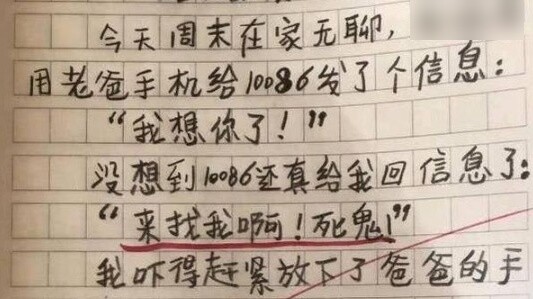 今天周末在家无聊，
用老爸手机给10086发了个信息：
“我想你了！”
没想到10086还真给我回信息了：
“来找我啊！死鬼！”
我吓得赶紧放下了爸爸的手